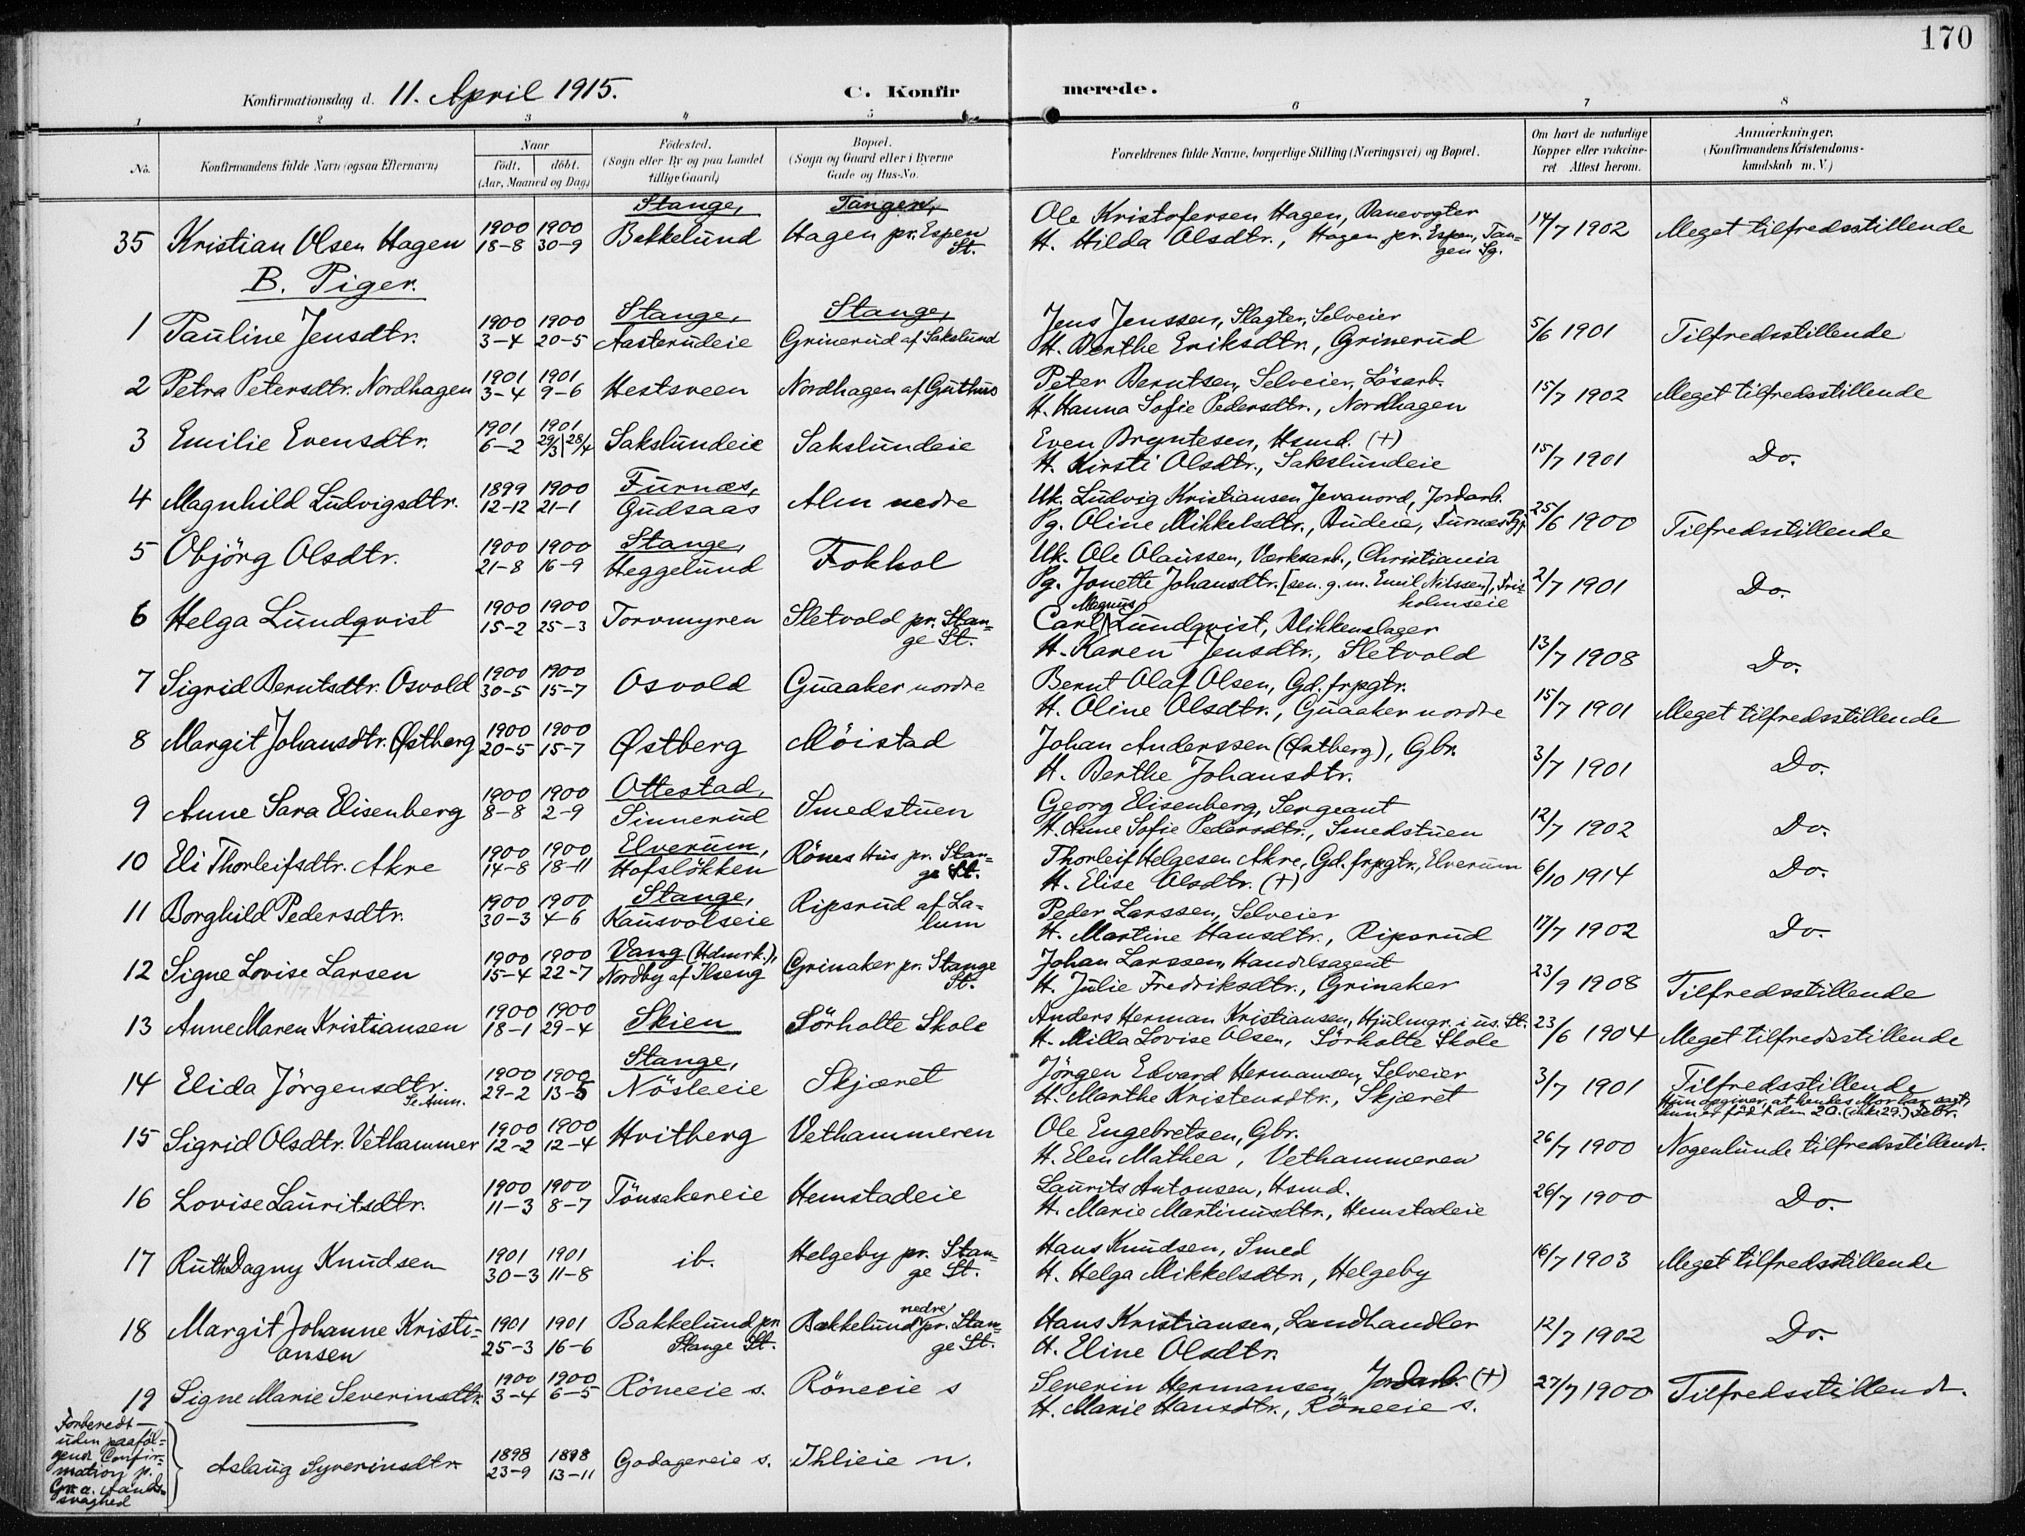 170
Konfirmationsdag d. 11. April 1915. C. Konfirmerede.
1 2 3 4 5 6 7 8
No. Konfirmandens fulde Navn (ogsaa Efternavn) Naar født, døbt. (Aar, Maaned og Dag) Födested. (Sogn eller By og paa Landet tillige Gaard) Bopæl. (Sogn og Gaard eller i Byerne Gade og Hus-No. Forældrenes fulde Navne, borgerlige Stilling (Næringsvei) og Bopæl. Om havt de naturlige Kopper eller vaccineret Attest herom. Anmærkninger. (Konfirmandens Kristendomskundskab m. V.)
Stange, Tangen, Ole Kristofersen Hagen, Banevogter
35 Kristian Olsen Hagen 1900 18-8 1900 30-9 Bekkelund Hagen pr. Espen St. H. Hilda Olsdtr., Hagen pr. Espen, Tangen Sg. 14/7 1902 Meget tilfredsstillende
B. Piger.
Stange, Stange, Jens Jenssen, Slagter, Selveier
1 Pauline Jensdtr. 1900 3-4 1900 20-5 Aasterudeie Grinerud af Sakslund H. Berthe Eriksdtr., Grinerud 5/6 1901 Tilfredsstillende
Peter Berntsen, Selveier, Lösarb.
2 Petra Petersdtr. Nordhagen 1901 3-4 1901 9-6 Hestsveen Nordhagen af Guthus H. Hanna Sofie Pedersdtr., Nordhagen 15/7 1902 Meget tilfredsstillende
Even Bryntesen, Hsmd. (+)
3 Emilie Evensdtr. 1901 6-2 1901 29/3 | 28/4 Sakslundeie Sakslundeie H. Kirsti Olsdtr., Sakslundeie 15/7 1901 Do.
Furnæs, Uk. Ludvig Kristiansen Jevanord, Jordarb.
4 Magnhild Ludvigsdtr. 1899 12-12 1900 21-1 Gudsaas Alm nedre Pg. Oline Mikkelsdtr., Budeie, Furnæs Pg. 25/6 1900 Tilfredsstillende
Stange, Uk. Ole Olaussen, Værksarb., Christiania
5 Objörg Olsdtr. 1900 21-8 1900 16-9 Heggelund Fokhol Pg. Jonette Johansdtr. [sen. g. m. Emil Nilssen], Frisholmseie 2/7 1901 Do.
6 Helga Lundqvist 1900 15-2 1900 25-3 Torvmyren Sletvold pr. Stange St. Carl Magnus Lundqvist, Blikkenslager
H. Karen Jensdtr., Sletvold 13/7 1908 Do.
7 Sigrid Berntsdtr. Osvold 1900 30-5 1900 15-7 Osvold Guaaker nordre Bernt Olaf Olsen, Gd. frpgtr.
H. Oline Olsdtr., Guaaker nordre 15/7 1901 Meget tilfredsstillende
8 Margit Johansdtr. Østberg 1900 20-5 1900 15-7 Østberg Möistad Johan Anderssen (Østberg), Gbr.
H. Berthe Johansdtr. 3/7 1901 Do.
Ottestad, Georg Elisenberg, Sergeant
9 Anne Sara Elisenberg 1900 8-8 1900 2-9 Sinnerud Smedstuen H. Anne Sofie Pedersdtr., Smedstuen 12/7 1902 Do.
Elverum, Thorleif Helgesen Akre, Gd. frpgtr., Elverum
10 Eli Thorleifsdtr. Akre 1900 14-8 1900 18-11 Hofslökken Rönes Hus pr. Stange St. H. Elise Olsdtr. (+) 6/10 1914 Do.
Stange, Peder Larssen, Selveier
11 Borghild Pedersdtr. 1900 30-3 1900 4-6 Kausvolseie Ripsrud af Lalum H. Martine Hansdtr., Ripsrud 17/7 1902 Do.
Vang (Hdmrk.), Johan Larssen, Handelsagent
12 Signe Lovise Larsen 1900 15-4 1900 22-7 Nordby af Ilseng Grinaker pr. Stange St. H. Julie Fredriksdtr., Grinaker 23/9 1908 Tilfredsstillende
Anders Herman Kristiansen, Hjulmgr. i us. St.
13 Anne Maren Kristiansen 1900 18-1 1900 29-4 Skien Sörholte Skole H. Milla Lovise Olsen, Sörholte Skole 23/6 1904 Meget tilfredsstillende
Stange, Jörgen Edvard Hermansen, Selveier
14 Elida Jörgensdtr. Se Anm. 1900 29-2 1900 13-5 Nösteeie Skjæret H. Marthe Kristensdtr., Skjæret 3/7 1901 Tilfredsstillende
Hun opgiver, at hendes Mor har sagt,
hun er född den 20. (ikke 29.) Febr.
15 Sigrid Olsdtr. Vethammer 1900 12-2 1900 12-4 Hvitberg Vethammeren Ole Engebretsen, Gbr.
H. Elen Mathea, Vethammeren 26/7 1900 Nogenlunde tilfredsstillende.
16 Lovise Lauritsdtr. 1900 11-3 1900 8-7 Tönsakereie Hemstadeie Laurits Antonsen, Hsmd.
H. Marie Martinusdtr., Hemstadeie 26/7 1900 Do.
17 Ruth Dagny Knudsen 1901 30-3 1901 11-8 ib. Helgeby pr. Stange St. Hans Knudsen, Smed
H. Helga Mikkelsdtr., Helgeby 16/7 1903 Meget tilfredsstillende
18 Margit Johanne Kristiansen 1901 25-3 1901 16-6 Bakkelund pr. Stange St. Bakkelund nedre pr. Stange St. Hans Kristiansen, Landhandler
H. Eline Olsdtr. 12/7 1902 Do.
19 Signe Marie Severinsdtr. 1900 3-4 1900 6-5 Röneeie s. Röneeie s Severin Hermansen, Jordarb. (+)
H. Marie Hansdtr., Röneeie s. 27/7 1900 Tilfredsstillende.
Forberedt
uden paaföl-
gende Confir-
mation p.
Gr. a. Aands-
svaghed
Aslaug Syverinsdtr. 1898 23-9 1898 13-11 Godagereie s. Ihlieie n.